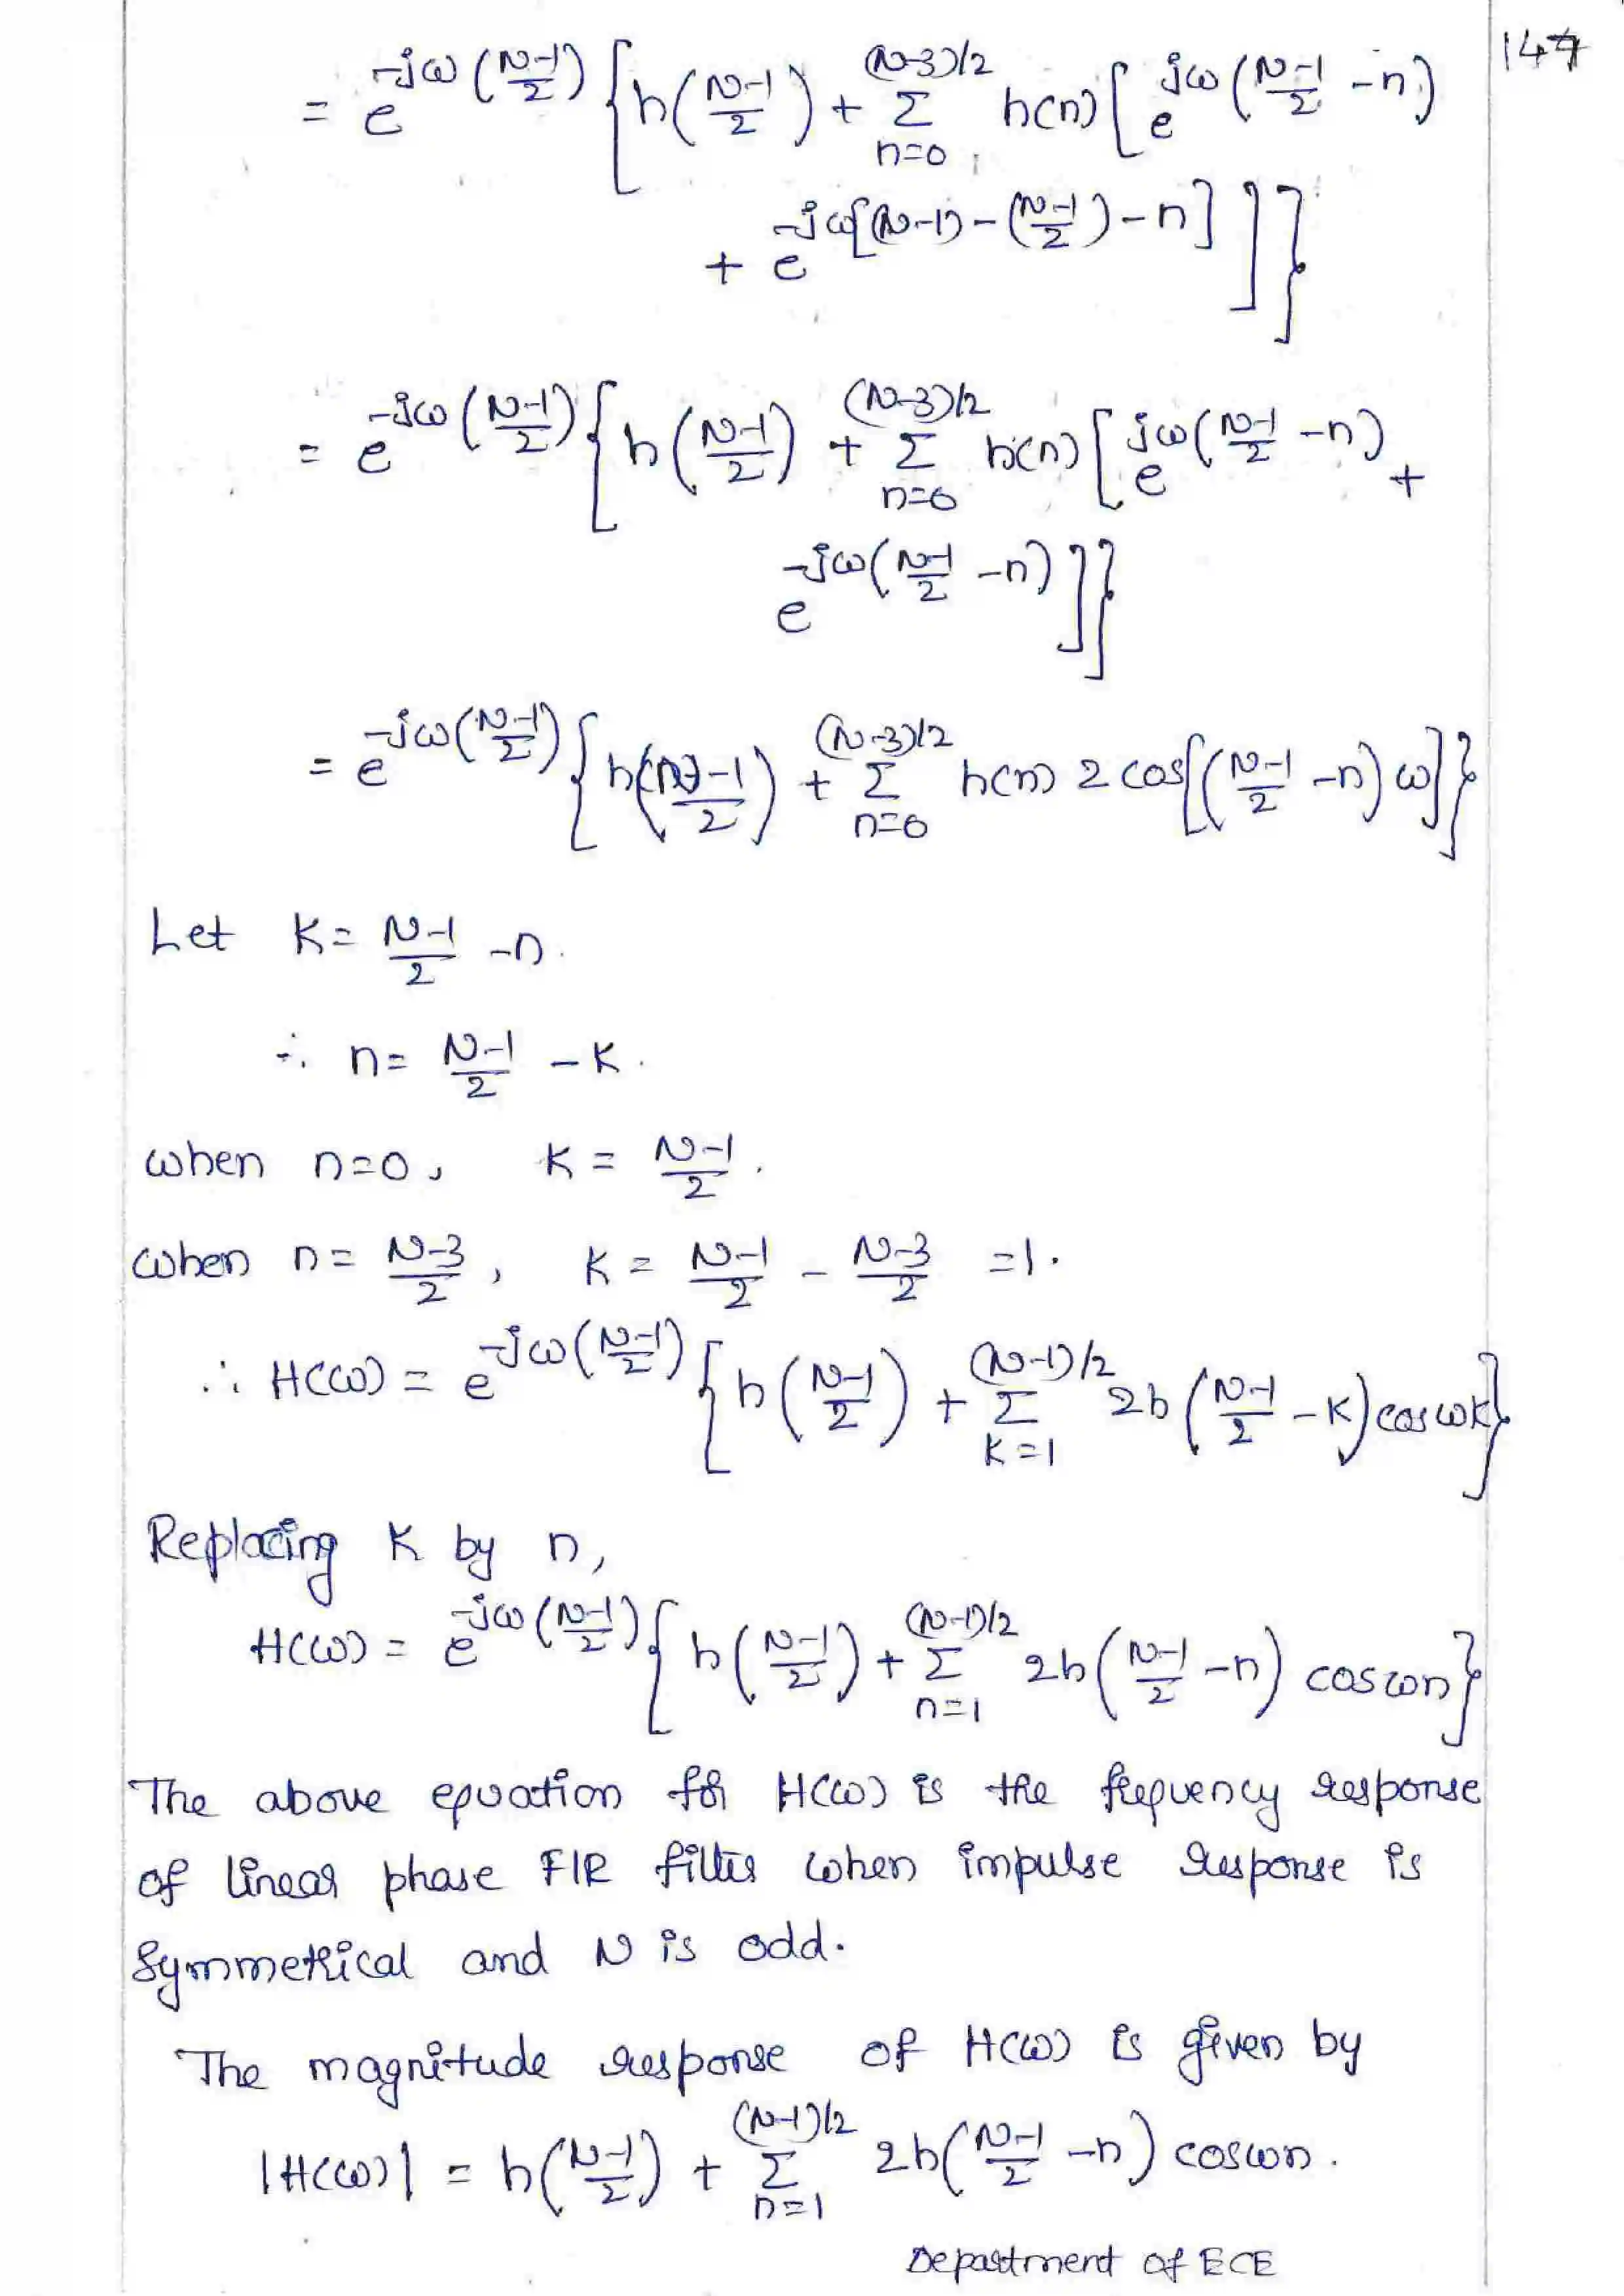 147
= e^{-jω((N-1)/2)} { h((N-1)/2) + Σ_{n=0}^{(N-3)/2} h(n) [ e^{jω((N-1)/2 - n)}
+ e^{-jω[(N-1) - ((N-1)/2) - n]} ] }
= e^{-jω((N-1)/2)} { h((N-1)/2) + Σ_{n=0}^{(N-3)/2} h(n) [ e^{jω((N-1)/2 - n)} +
e^{-jω((N-1)/2 - n)} ] }
= e^{-jω((N-1)/2)} { h((N-1)/2) + Σ_{n=0}^{(N-3)/2} h(n) 2 cos[((N-1)/2 - n) ω] }
Let K = (N-1)/2 - n.
∴ n = (N-1)/2 - K.
when n=0, K = (N-1)/2.
when n = (N-3)/2, K = (N-1)/2 - (N-3)/2 = 1.
∴ H(ω) = e^{-jω((N-1)/2)} { h((N-1)/2) + Σ_{K=1}^{(N-1)/2} 2h((N-1)/2 - K) cos ωK }
Replacing K by n,
H(ω) = e^{-jω((N-1)/2)} { h((N-1)/2) + Σ_{n=1}^{(N-1)/2} 2h((N-1)/2 - n) cos ωn }
The above equation for H(ω) is the frequency response
of linear phase FIR filter when impulse response is
Symmetrical and N is odd.
The magnitude response of H(ω) is given by
|H(ω)| = h((N-1)/2) + Σ_{n=1}^{(N-1)/2} 2h((N-1)/2 - n) cos ωn.
Department of ECE